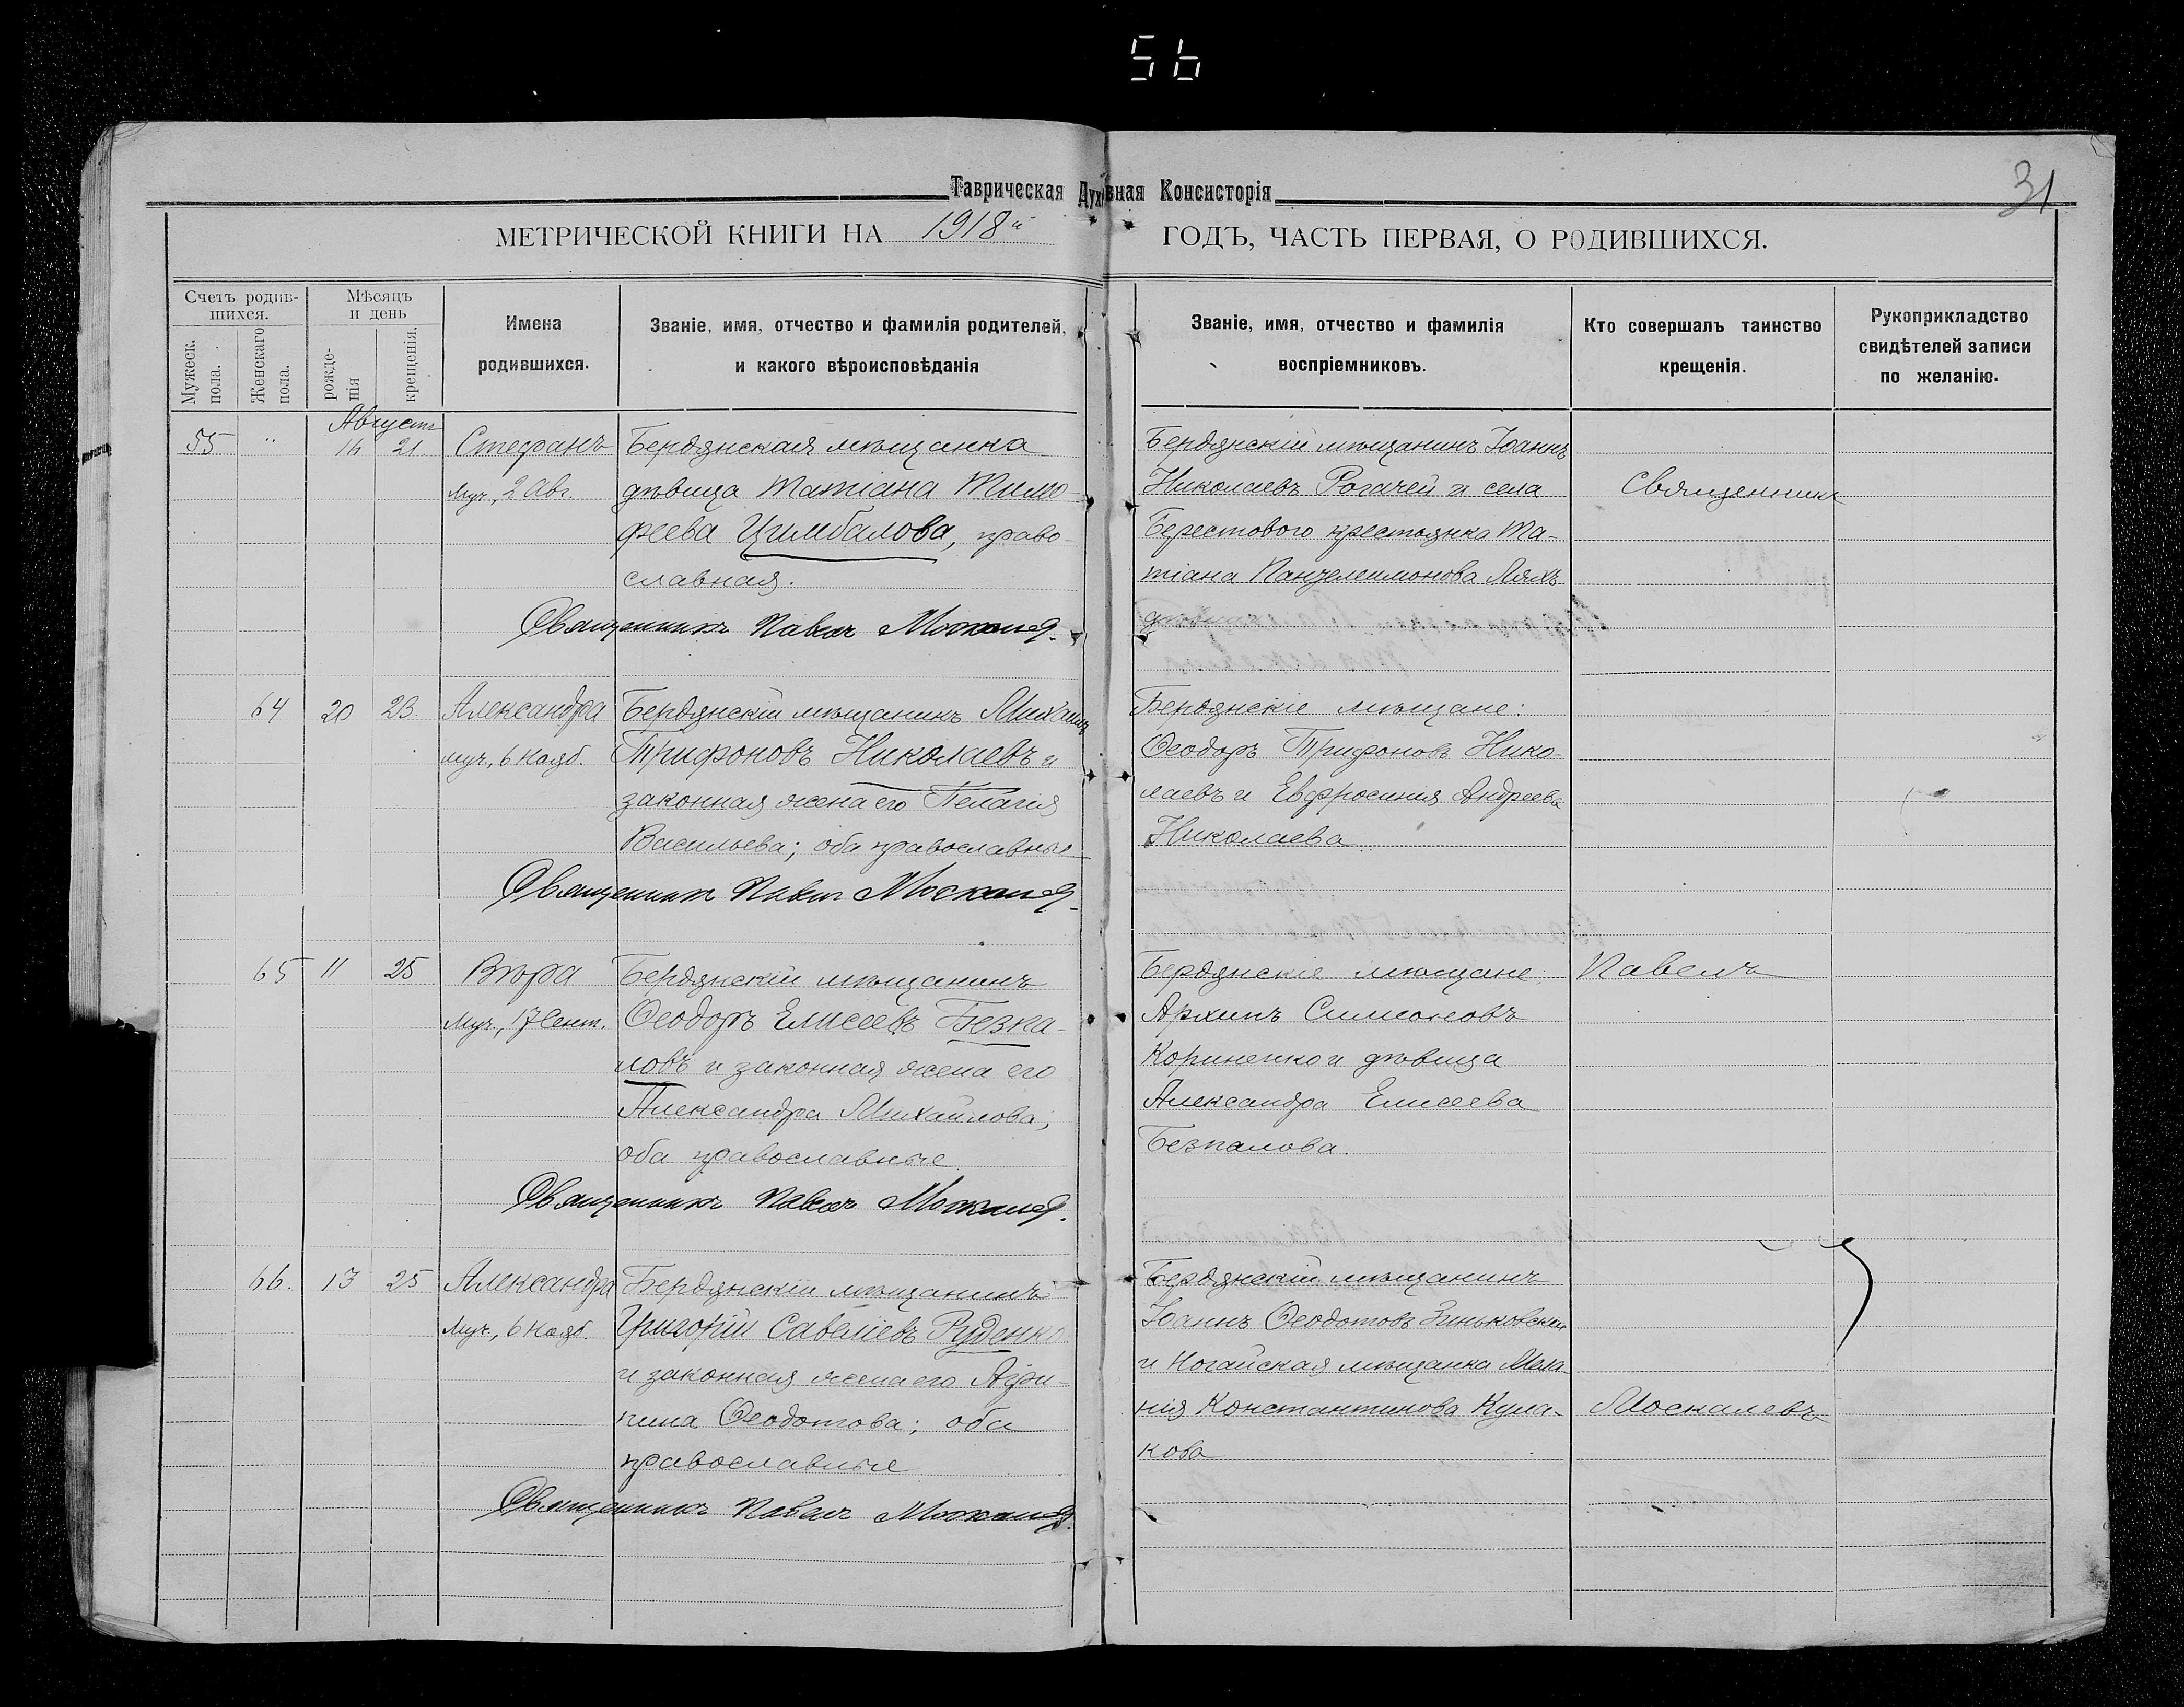 56
Таврическая Духовная Консисторія
31
МЕТРИЧЕСКОЙ КНИГИ НА 1918й ГОДЪ, ЧАСТЬ ПЕРВАЯ, О РОДИВШИХСЯ.
Счетъ родив-
шихся.
Мужеск. пола.
Женскаго пола.
Мѣсяцъ
и день
рожде-
нія
крещенія.
Имена
родившихся.
Званіе, имя, отчество и фамилія родителей,
и какого вѣроисповѣданія
Званіе, имя, отчество и фамилія
воспріемниковъ.
Кто совершалъ таинство
крещенія.
Рукоприкладство
свидѣтелей записи
по желанію.
Августъ
55 " 16 21. Стефанъ
муч., 2 Авг.
Бердянская мѣщанка
дѣвица Татіана Тимо-
феева Цимбалова, право-
славная.
Священникъ Павелъ Москалев.
Бердянскій мѣщанинъ Іоаннъ
Николаевъ Рогачей и села
Берестового крестьянка Та-
тіана Пантелеимонова Ляхъ
Священникъ
64 20 23. Александра
муч., 6 Нояб.
Бердянскій мѣщанинъ Михаилъ
Трифоновъ Николаевъ и
законная жена его Пелагія
Васильева; оба православные
Священникъ Павелъ Москалев.
Бердянскіе мѣщане:
Ѳеодоръ Трифоновъ Нико-
лаевъ и Евфросинія Андреева
Николаева
65 11 25 Вѣра
Муч., 17 Сент.
Бердянскій мѣщанинъ
Ѳеодоръ Елисеевъ Безпа-
ловъ и законная жена его
Александра Михайлова;
оба православные.
Священникъ Павелъ Москалев.
Бердянскіе мѣщане:
Архипъ Симоновъ
Кориненко и дѣвица
Александра Елисеева
Безпалова.
Павелъ
66. 13 25 Александра
Муч., 6 Нояб.
Бердянскій мѣщанинъ
Григорій Савеліевъ Руденко
и законная жена его Агри-
пина Ѳеодотова; оба
православные
Священникъ Павелъ Москалев.
Бердянскій мѣщанинъ
Іоаннъ Ѳеодотовъ Зиньковскій
и Ногайская мѣщанка Мела-
нія Константинова Кула-
кова
Москалевъ